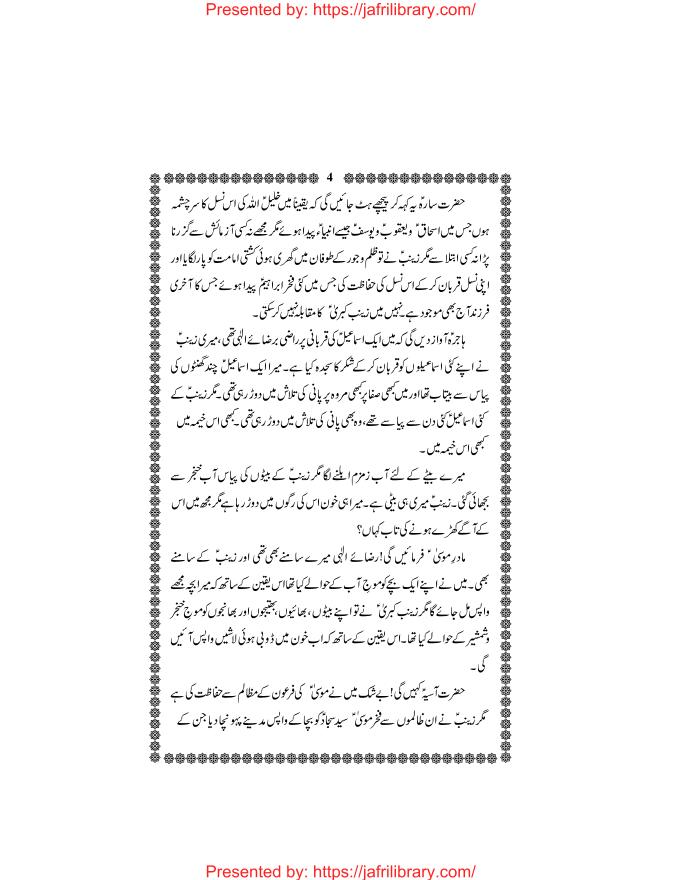 Presented by: https://jafrilibrary.com/
4
حضرت سارہؑ یہ کہہ کر پیچھے ہٹ جائیں گی کہ یقیناً میں خلیلؑ اللہ کی اس نسل کا سرچشمہ
ہوں جس میں اسحاقؑ و یعقوبؑ و یوسفؑ جیسے انبیاء پیدا ہوئے مگر مجھے نہ کسی آزمائش سے گزرنا
پڑا نہ کسی ابتلا سے مگر زینبؑ نے تو ظلم و جور کے طوفان میں گھری ہوئی کشتی امامت کو پار لگایا اور
اپنی نسل قربان کر کے اس نسل کی حفاظت کی جس میں کئی فخر ابراہیمؑ پیدا ہوئے جس کا آخری
فرزند آج بھی موجود ہے۔ نہیں میں زینب کبریٰؑ کا مقابلہ نہیں کر سکتی۔
ہاجرہؑ آواز دیں گی کہ میں ایک اسماعیلؑ کی قربانی پر راضی برضائے الٰہی تھی، میری زینبؑ
نے اپنے کئی اسماعیلوں کو قربان کر کے شکر کا سجدہ کیا ہے۔ میرا ایک اسماعیلؑ چند گھنٹوں کی
پیاس سے بیتاب تھا اور میں کبھی صفا پر کبھی مروہ پر پانی کی تلاش میں دوڑ رہی تھی۔ مگر زینبؑ کے
کئی اسماعیلؑ کئی دن سے پیاسے تھے، وہ بھی پانی کی تلاش میں دوڑ رہی تھی۔ کبھی اس خیمہ میں
کبھی اس خیمہ میں۔
میرے بیٹے کے لئے آب زمزم ابلنے لگا مگر زینبؑ کے بیٹوں کی پیاس آب خنجر سے
بجھائی گئی۔ زینبؑ میری ہی بیٹی ہے۔ میرا ہی خون اس کی رگوں میں دوڑ رہا ہے مگر مجھ میں اس
کے آگے کھڑے ہونے کی تاب کہاں؟
مادر موسیٰؑ فرمائیں گی! رضائے الٰہی میرے سامنے بھی تھی اور زینبؑ کے سامنے
بھی۔ میں نے اپنے ایک بچے کو موج آب کے حوالے کیا تھا اس یقین کے ساتھ کہ میرا بچہ مجھے
واپس مل جائے گا مگر زینب کبریٰؑ نے تو اپنے بیٹوں، بھائیوں، بھتیجوں اور بھانجوں کو موج خنجر
و شمشیر کے حوالے کیا تھا۔ اس یقین کے ساتھ کہ اب خون میں ڈوبی ہوئی لاشیں واپس آئیں
گی۔
حضرت آسیہؑ کہیں گی! بے شک میں نے موسیٰؑ کی فرعون کے مظالم سے حفاظت کی ہے
مگر زینبؑ نے ان ظالموں سے فخر موسیٰؑ سید سجادؑ کو بچا کے واپس مدینے پہونچا دیا جن کے
Presented by: https://jafrilibrary.com/